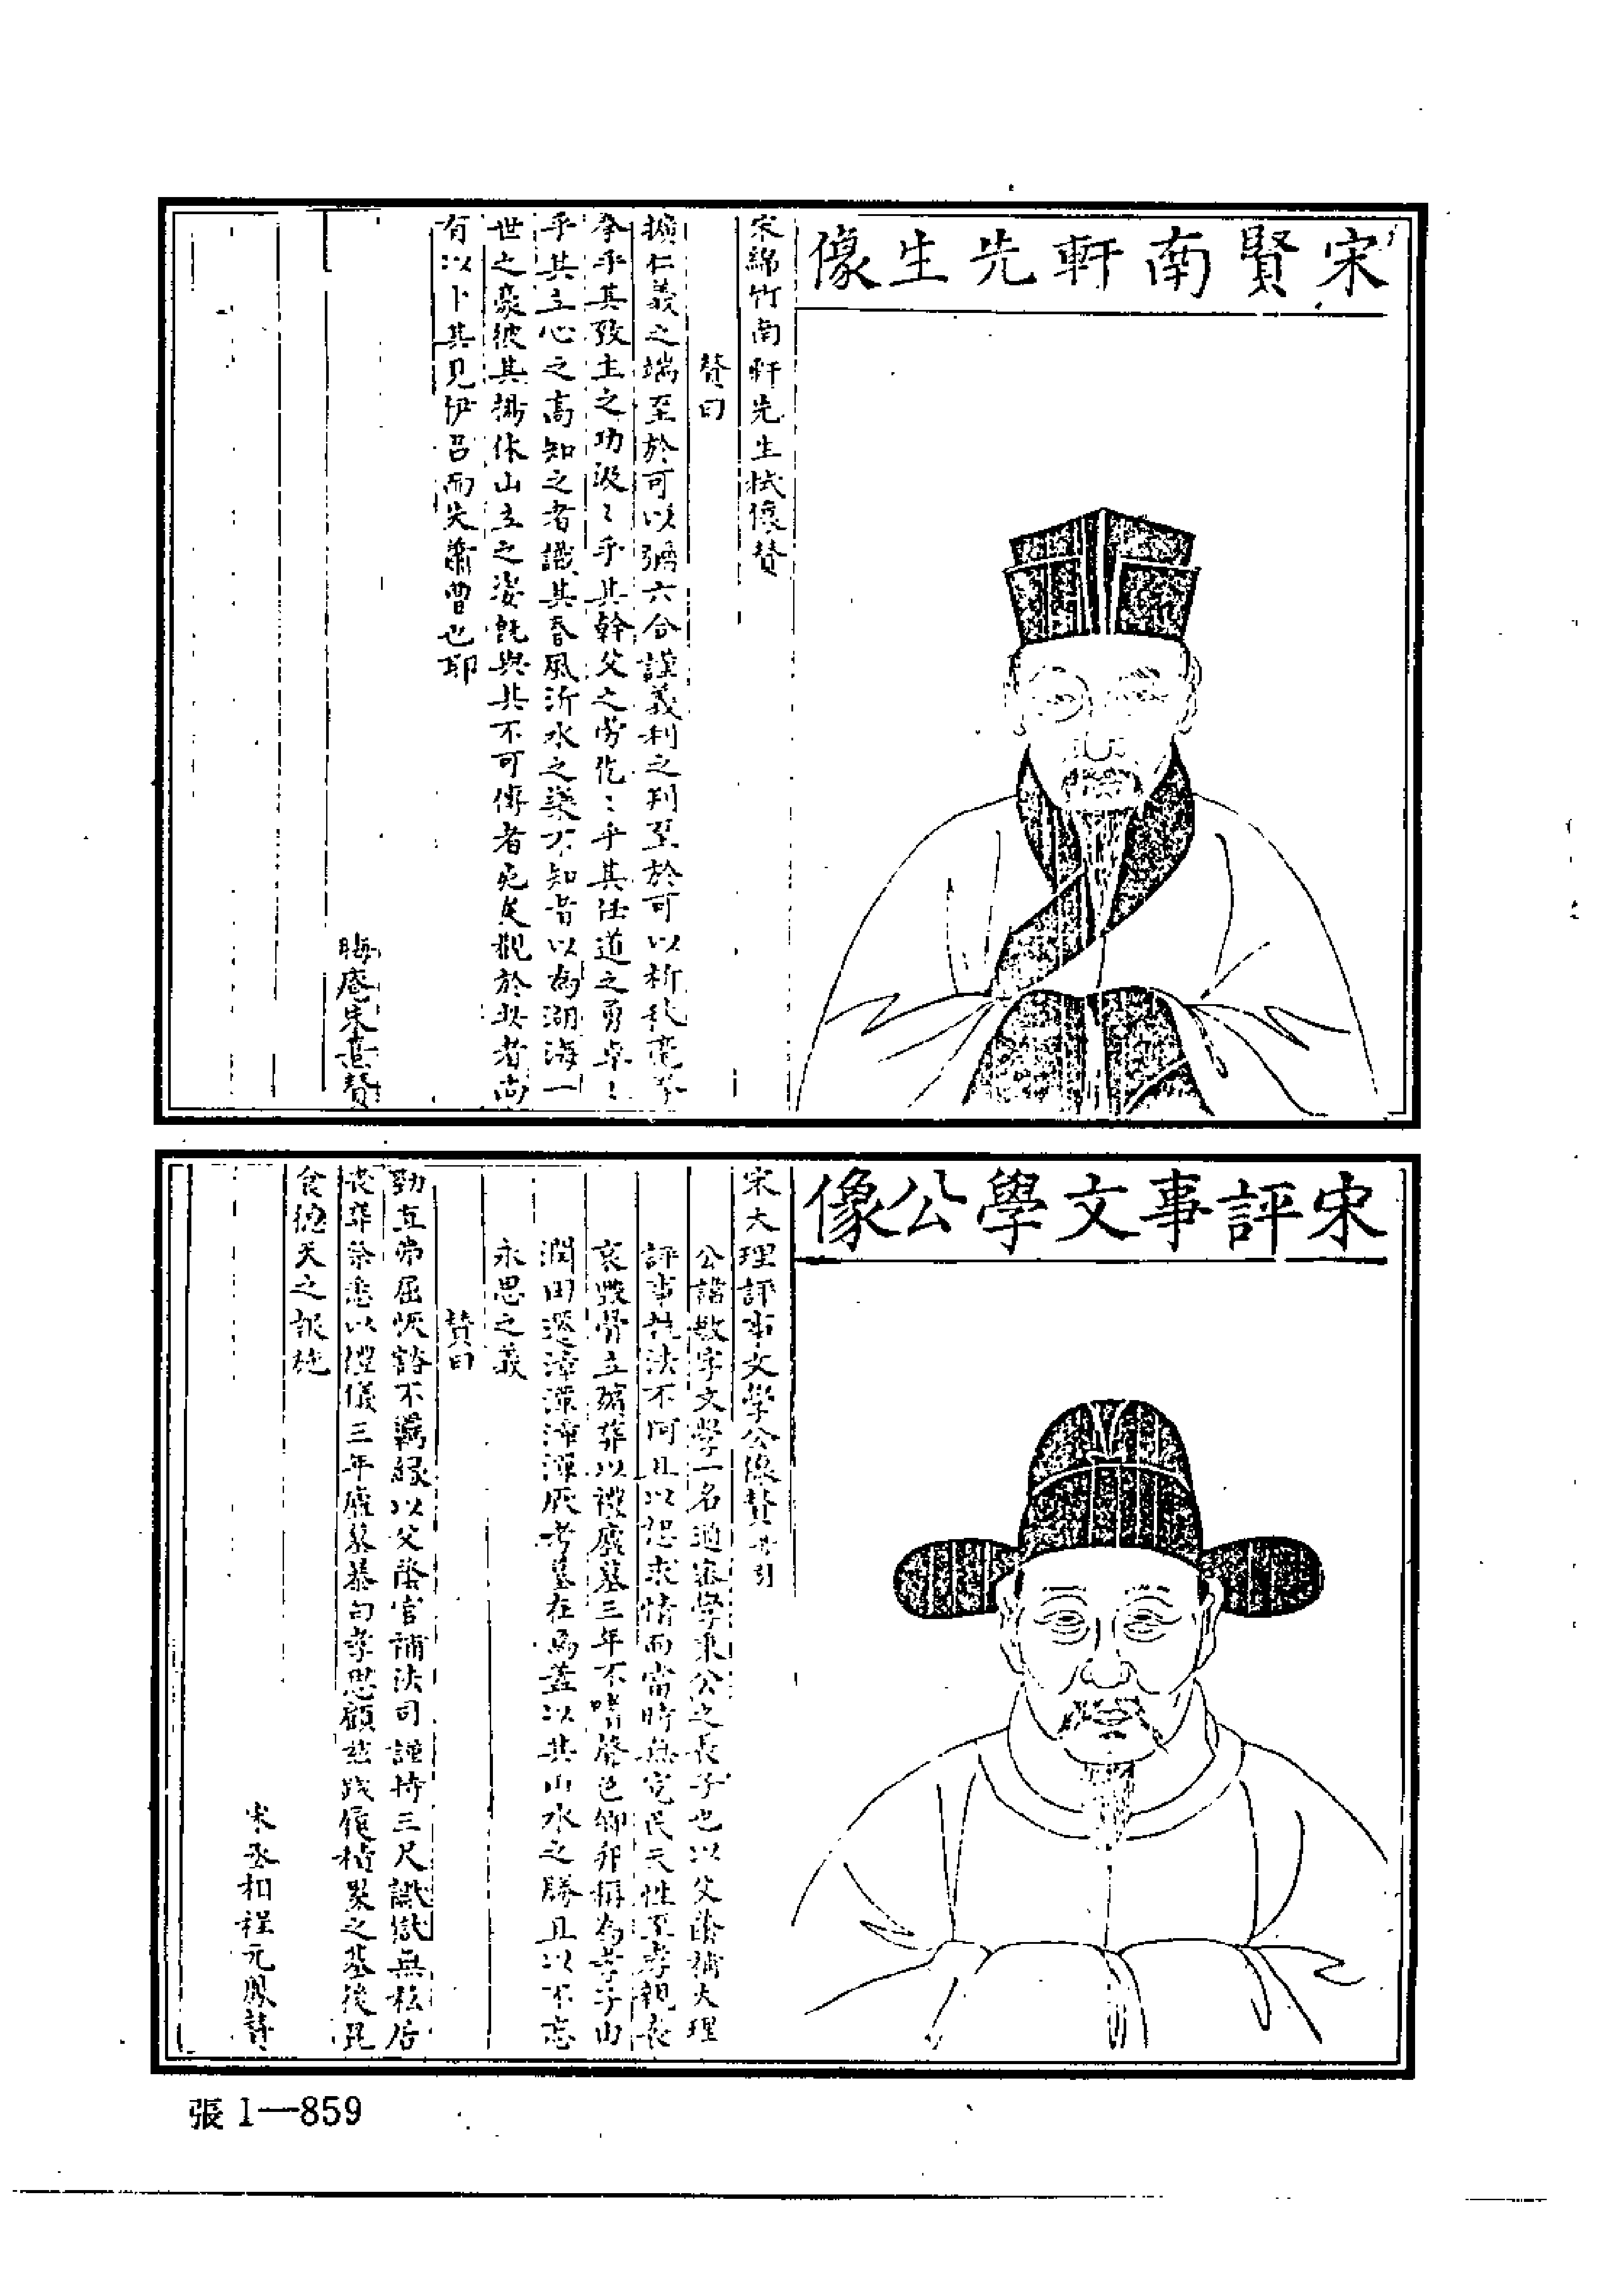 宋賢南軒先生像
宋綿竹南軒先生栻像贊
贊曰
擴仁義之端至於可以彌六合謹義利之判至於可以析秋毫拳
拳乎其致主之功汲〻乎其幹父之勞仡〻乎其任道之勇卓〻
乎其立心之高知之者識其春風沂水之樂不知者以為湖海一
世之豪彼其揚休山立之姿旣與其不可傳者死矣觀於此者尚
有以卜其見伊呂而失蕭曹也耶
晦庵朱熹贊
宋評事文學公像
宋大理評事文學公像贊并引
公諧敭字文學一名適字學東公之長子也以父蔭補大理
評事執法不阿且以恕求情而當時無冤民天性至孝親喪
哀毀骨立殯葬以禮廬墓三年不嗜聲色鄉邦稱為孝子由
潤田還漳潭漳潭厥考墓在焉蓋以其山水之勝且以不忘
永思之義
贊曰
勁直常屈恢諮不羈緣以父蔭官補法司謹持三尺讞獄無私居
喪葬祭悉以禮儀三年廬墓暴白孝思顧茲 後昆
食德天之報施
宋丞相程元鳳贊
張1—859